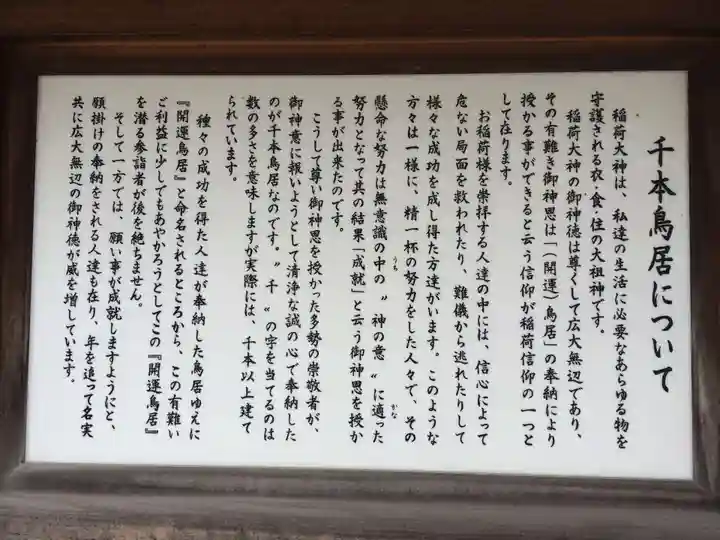 千本鳥居について
稲荷大神は、私達の生活に必要なあらゆる物を
守護される衣・食・住の大祖神です。
稲荷大神の御神徳は尊くして広大無辺であり、
その有難き御神恩は「(開運)鳥居」の奉納により
授かる事ができると云う信仰が稲荷信仰の一つと
して在ります。
お稲荷様を崇拝する人達の中には、信心によって
危ない局面を救われたり、難儀から逃れたりして
様々な成功を成し得た方達がいます。このような
方々は一様に、精一杯の努力をした人々で、その
懸命な努力は無意識の中の〝神の意〟に適った
努力となって其の結果「成就」と云う御神恩を授か
る事が出来たのです。
こうして尊い御神恩を授かった多勢の崇敬者が、
御神意に報いようとして清浄な誠の心で奉納した
のが千本鳥居なのです。〝千〟の字を当てるのは
数の多さを意味しますが実際には、千本以上建て
られています。
種々の成功を得た人達が奉納した鳥居ゆえに
『開運鳥居』と命名されるところから、この有難い
ご利益に少しでもあやかろうとしてこの『開運鳥居』
を潜る参詣者が後を絶ちません。
そして一方では、願い事が成就しますようにと、
願掛けの奉納をされる人達も在り、年を追って名実
共に広大無辺の御神徳が威を増しています。